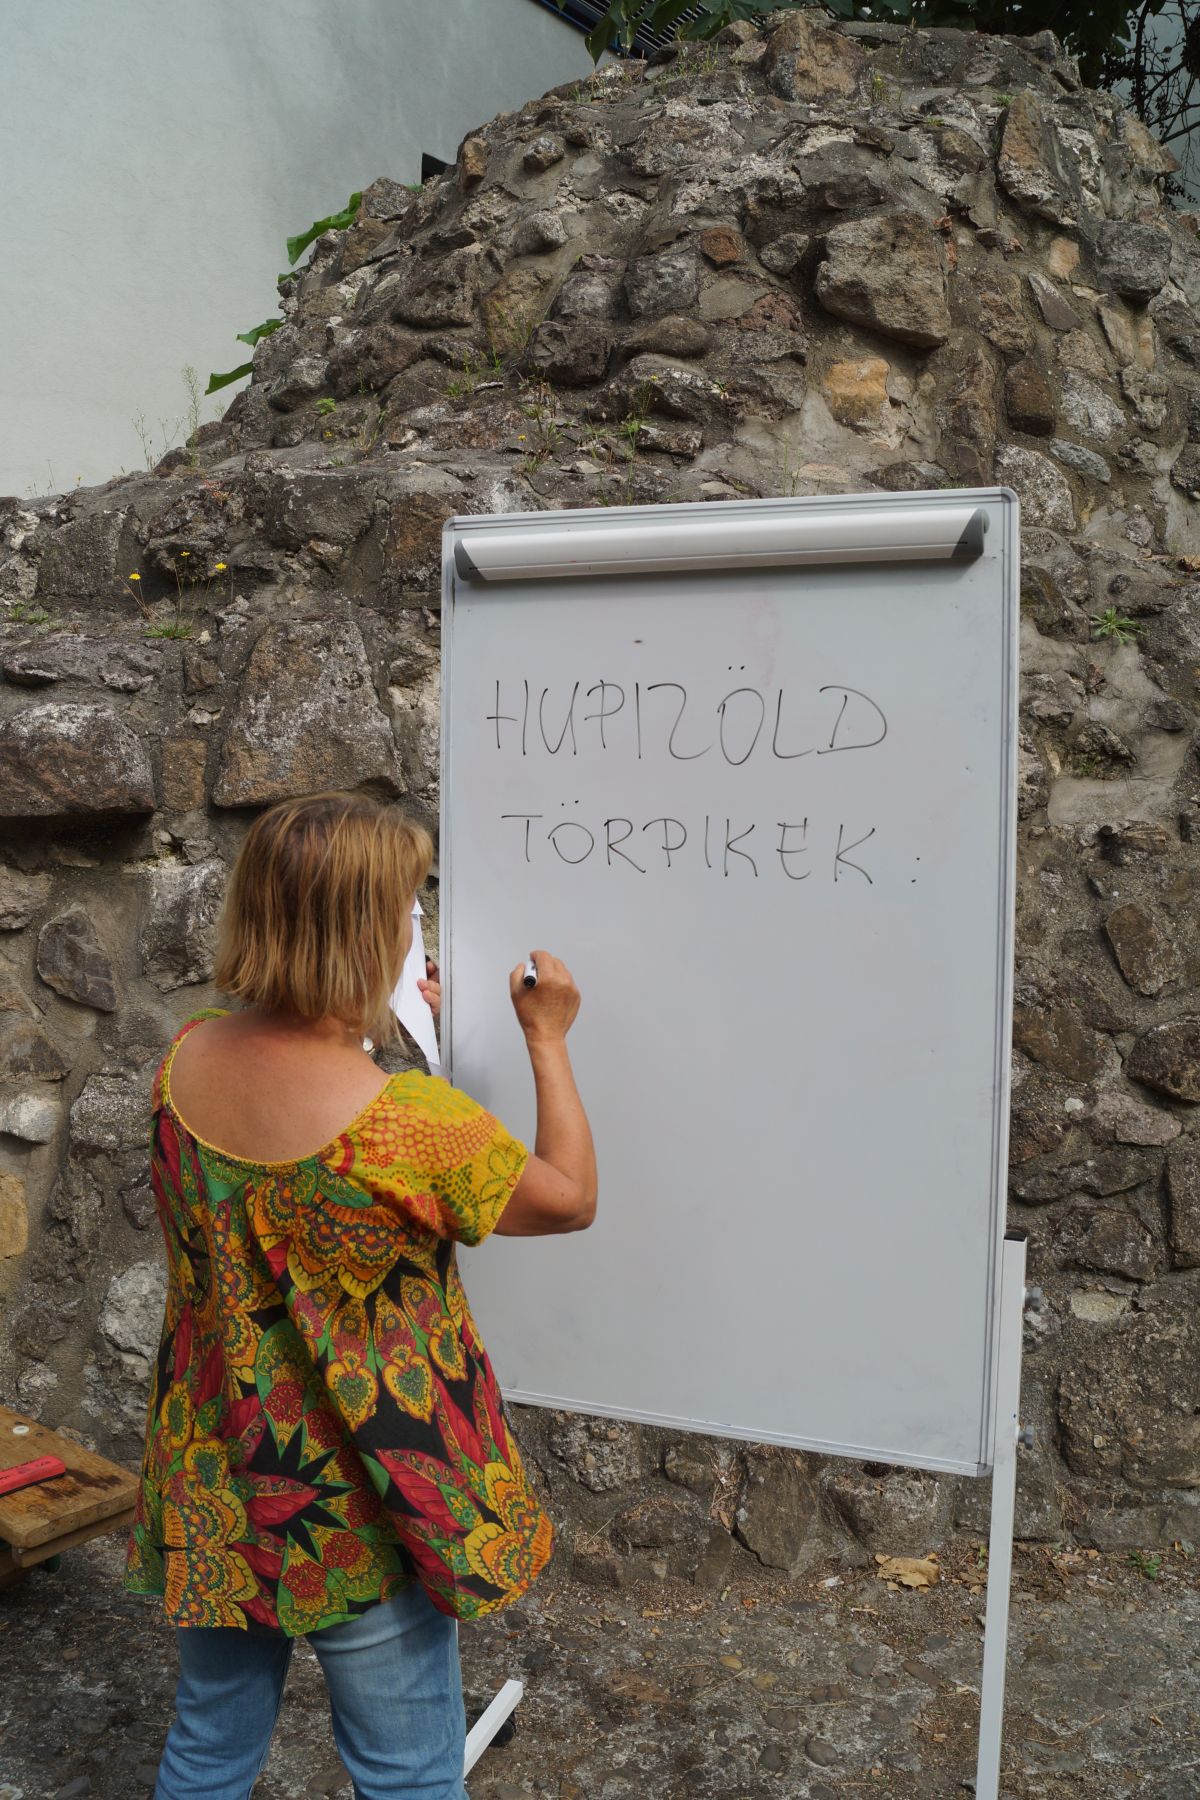 HUPIZÖLD
TÖRPIKEK: